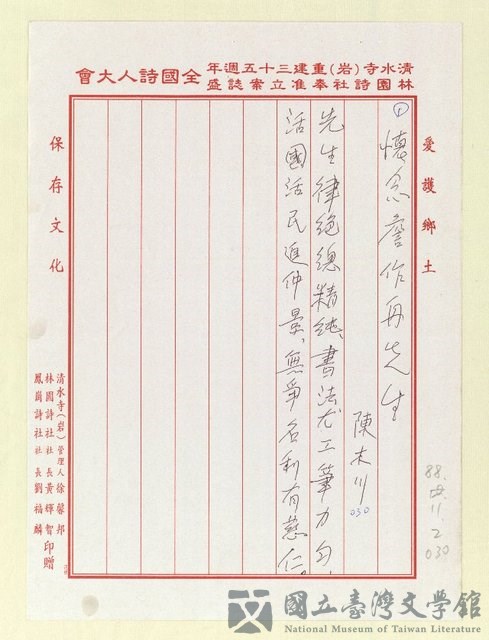 清水寺(岩)重建三十五週年
林園詩社奉准立案誌盛
全國詩人大會
愛護鄉土
①懷念詹作舟先生
陳木川
030
先生律絕總精純、書法尤工筆力勻、
活國活民追仲景、無爭名利有慈仁。
保存文化
清水寺(岩)管理人徐馨邦
林園詩社社長黃輝智
鳳岡詩社社長劉福麟
印贈
88.
11.2
030
國立臺灣文學館
National Museum of Taiwan Literature